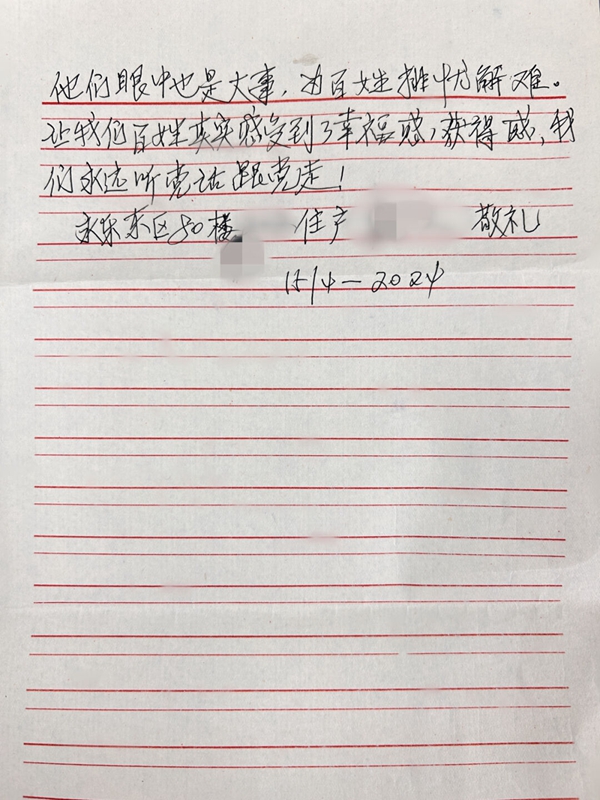 他们眼中也是大事，为百姓排忧解难。
让我们百姓真实感受到了幸福感，获得感，我
们永远听党话跟党走！
永乐东区50楼 住户 敬礼
15/4－2024